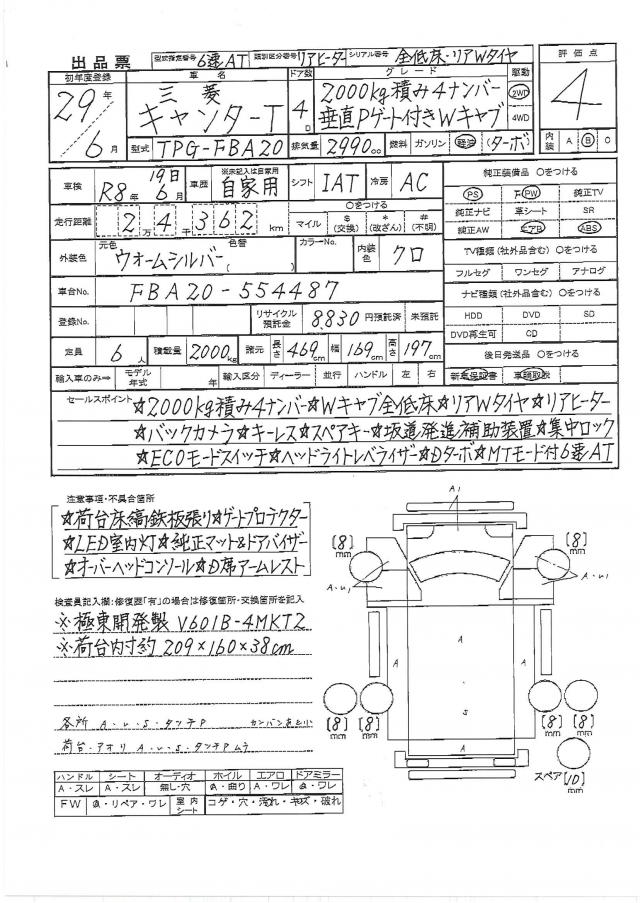 出品票 型式指定番号 6速AT 類別区分番号 リアヒーター シリアル番号 全低床・リアWタイヤ 評価点
初年度登録 車名 ドア数 グレード 駆動
29年 三菱 4D 2000kg積み4ナンバー 2WD 4
キャンターT 垂直Pゲート付きWキャブ 4WD
6月 型式 TPG-FBA20 排気量 2990cc 燃料 ガソリン 軽油 (ターボ) 内装 A B C
車検 R8年 19日 6月 車歴 ※未記入は自家用 自家用 シフト IAT 冷房 AC 純正装備品 〇をつける
PS PW 純正TV
走行距離 24千362km 2万 〇をつける 純正ナビ 革シート SR
マイル $(交換) *(改ざん) #(不明) 純正AW エアB ABS
外装色 元色 ウォームシルバー 色替 ( ) カラーNo. 内装色 クロ TV種類(社外品含む) 〇をつける
フルセグ ワンセグ アナログ
車台No. FBA20-554487 ナビ種類(社外品含む) 〇をつける
登録No. リサイクル預託金 8,830 円預託済 未預託 HDD DVD SD
DVD再生可 CD
定員 6人 積載量 2000kg 諸元 長さ 469cm 幅 169cm 高さ 197cm 後日発送品 〇をつける
輸入車のみ⇒ モデル年式 年 輸入区分 ディーラー 並行 ハンドル 左 右 新車保証書 車輌取説
セールスポイント ☆2000kg積み4ナンバー☆Wキャブ全低床☆リアWタイヤ☆リアヒーター
☆バックカメラ☆キーレス☆スペアキー☆坂道発進補助装置☆集中ロック
☆ECOモードスイッチ☆ヘッドライトレベライザー☆Dターボ☆MTモード付6速AT
注意事項・不具合箇所
☆荷台床縞鉄板張り☆ゲートプロテクター
☆LED室内灯☆純正マット&ドアバイザー
☆オーバーヘッドコンソール☆D席アームレスト
検査員記入欄:修復歴「有」の場合は修復箇所・交換箇所を記入
※極東開発製 V601B-4MKT2
※荷台内寸約209×160×38cm
各所 A・U・S・タッチP カンバンあとり
荷台・アオリ A・U・S・タッチPムラ
A1
[8]mm [8]mm
A・U1 A・U1
A
A A
S
A
[8]mm [8]mm [8]mm [8]mm
スペア [10]mm
ハンドル シート オーディオ ホイル エアロ ドアミラー
A・スレ A・スレ 無し・穴 A・曲り A・ワレ A・ワレ
FW A・リペア・ワレ 室内シート コゲ・穴・汚れ・キズ・破れ